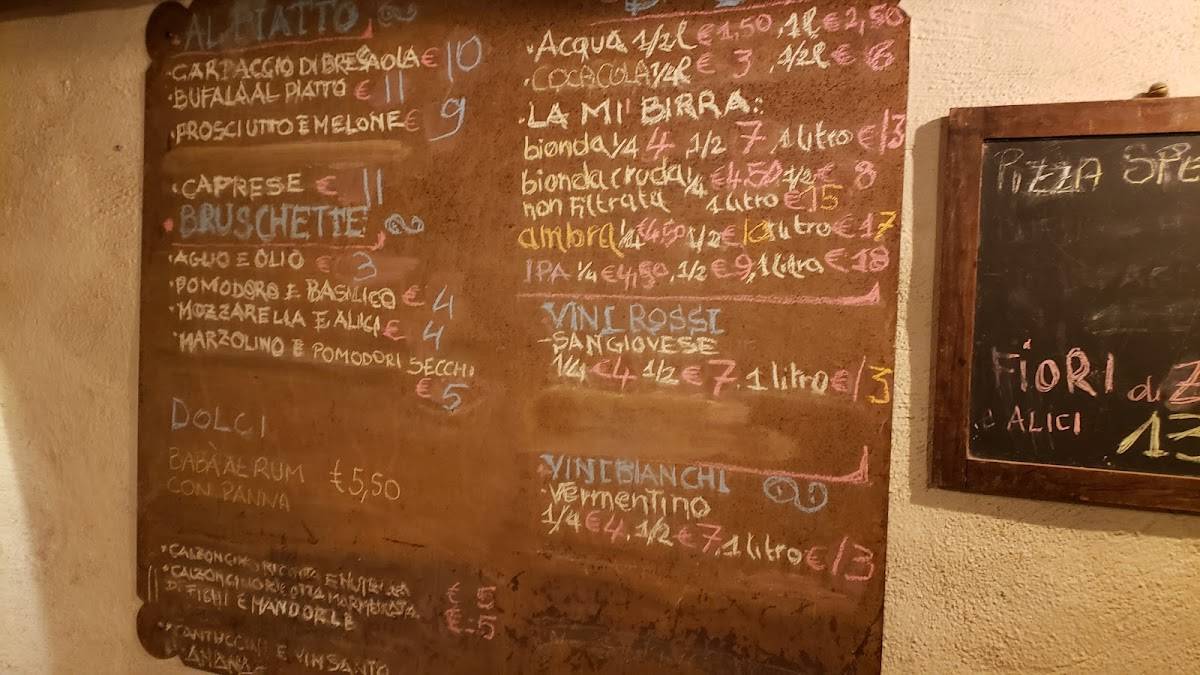 AL PIATTO
·CARPACCIO DI BRESAOLA € 10
·BUFALA AL PIATTO € 11
·PROSCIUTTO E MELONE € 9
·CAPRESE € 11
·BRUSCHETTE
·AGLIO E OLIO € 3
·POMODORO E BASILICO € 4
·MOZZARELLA E ALICI € 4
·MARZOLINO E POMODORI SECCHI
€ 5
DOLCI
BABÀ AL RUM € 5,50
CON PANNA
·CALZONCINO RICOTTA E NUTELLA € 5
·CALZONCINO RICOTTA MARMELLATA
DI FICHI E MANDORLE € 5
·CANTUCCINI E VINSANTO
·ANANAS
·Acqua 1/2l € 1,50, 1l € 2,50
·COCACOLA 1/4l € 3, 1/2l € 6
·LA MI' BIRRA:
bionda 1/4 4, 1/2 7, 1 litro € 13
bionda cruda 1/4 € 4.50 1/2 € 8
non filtrata 1 litro € 15
ambra 1/4 € 4.50 1/2 € 10 1 litro € 17
IPA 1/4 € 4,50, 1/2 € 9, 1 litro € 18
VINI ROSSI
-SANGIOVESE
1/4 € 4 1/2 € 7. 1 litro € 13
VINI BIANCHI
·Vermentino
1/4 € 4, 1/2 € 7, 1 litro € 13
PIZZA SPE
FIORI di Z
e ALICI 13